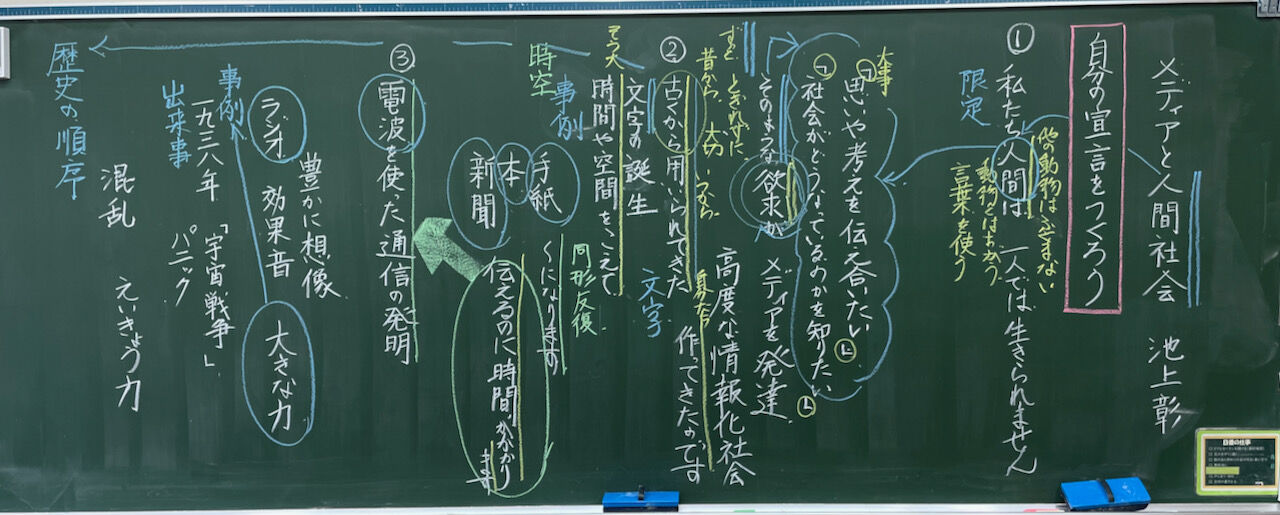 メディアと人間社会 池上彰
自分の宣言をつくろう
① 私たち人間は、一人では生きられません
限定
動物とはちがう
言葉を使う
大事
「思いや考えを伝え合いたい」
「社会がどうなっているのかを知りたい」
そのような欲求が メディアを発達
高度な情報化社会
ずっと とぎれずに
昔から、大切 いつから
② 古くから用いられてきた 作ってきたのです
文字の誕生 文字
時間や空間をこえて
事例
時空
同形反復
手紙 くになります
本
新聞 伝えるのに時間がかかります
③ 電波を使った通信の発明
豊かに想像
ラジオ 効果音 大きな力
事例
一九三八年 「宇宙戦争」
パニック
出来事
混乱 えいきょう力
歴史の順序